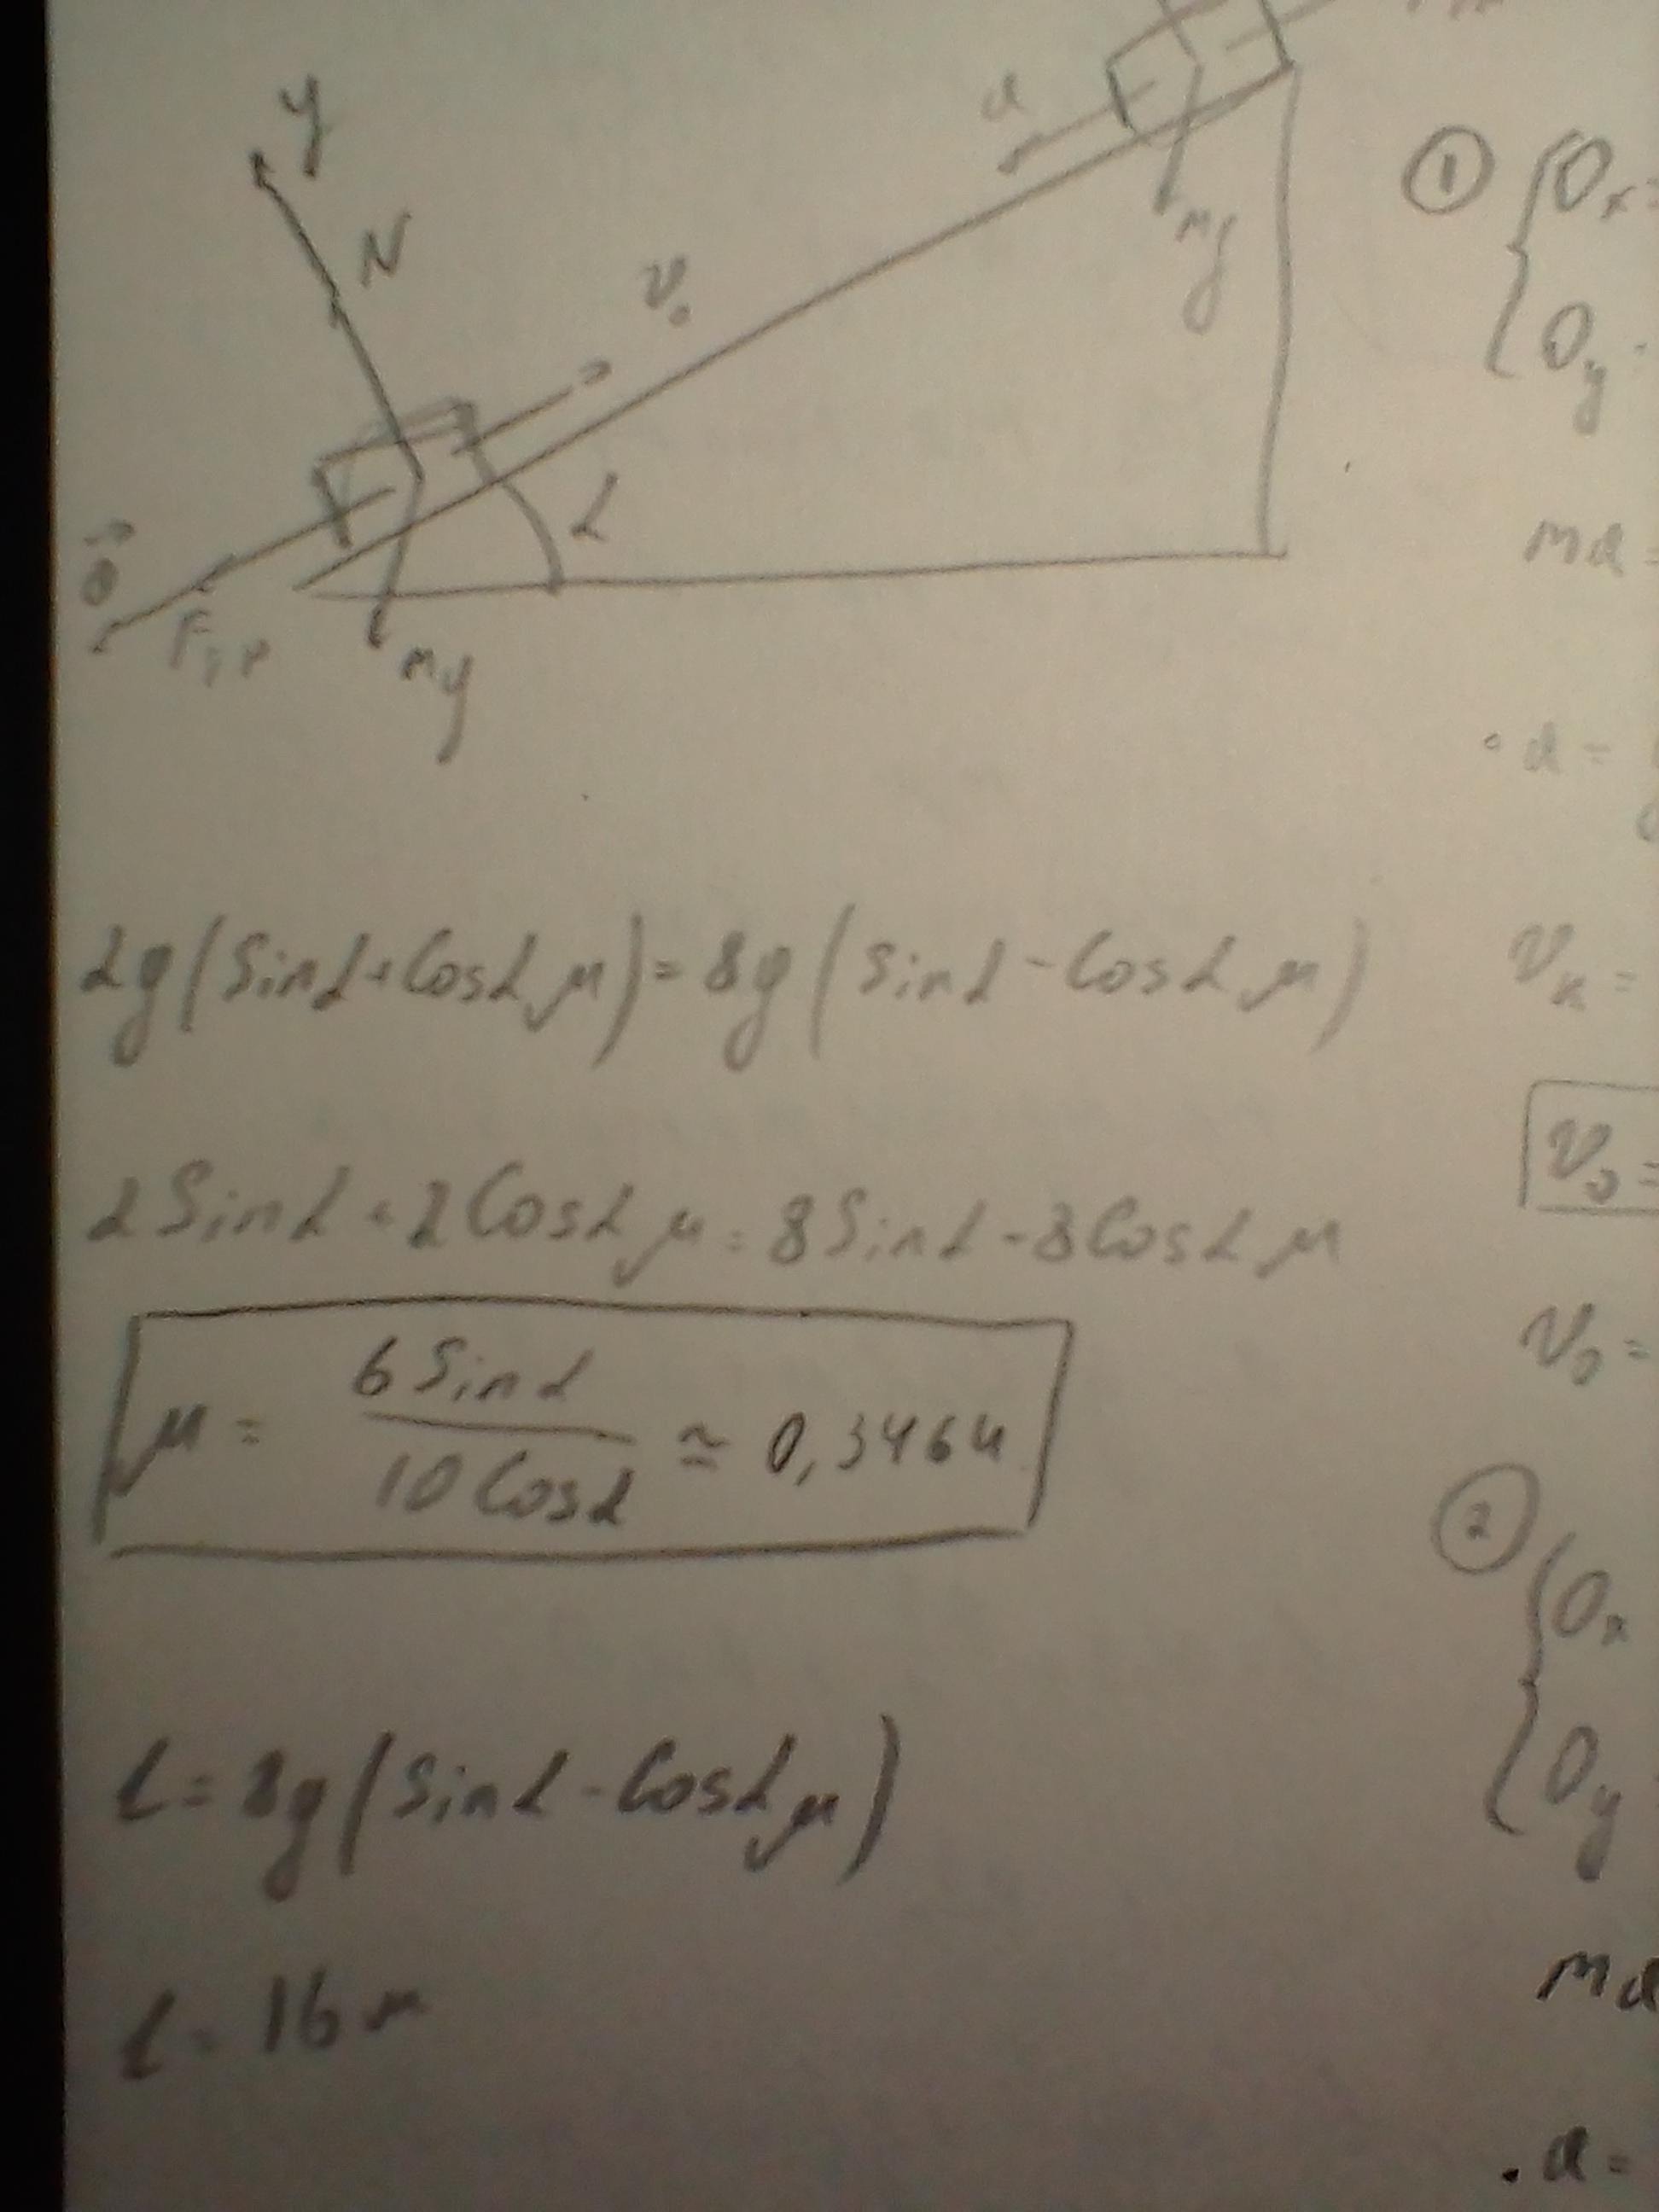 y
N
v₀
a
mg
α
F тр
mg
2g(Sinα+Cosα μ)=8g(Sinα-Cosα μ)
2Sinα+2Cosα μ=8Sinα-8Cosα μ
μ = 6Sinα / 10Cosα ≃ 0,3464
L=8g(Sinα-Cosα μ)
L=16м
① { Ox=
Oy
ma=
a=
vк=
v₀=
v₀=
② { Ox
Oy
ma
a=